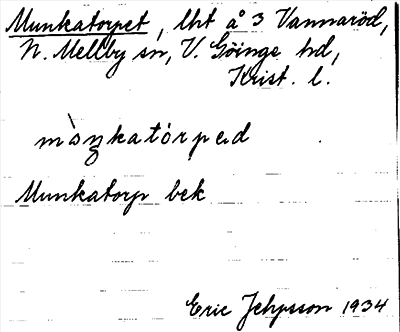 Munkatorpet, lht å 3 Vannaröd,
N. Mellby sn, V. Göinge hd,
Krist. l.
Munkatorp bek
Eric Jepsson 1934